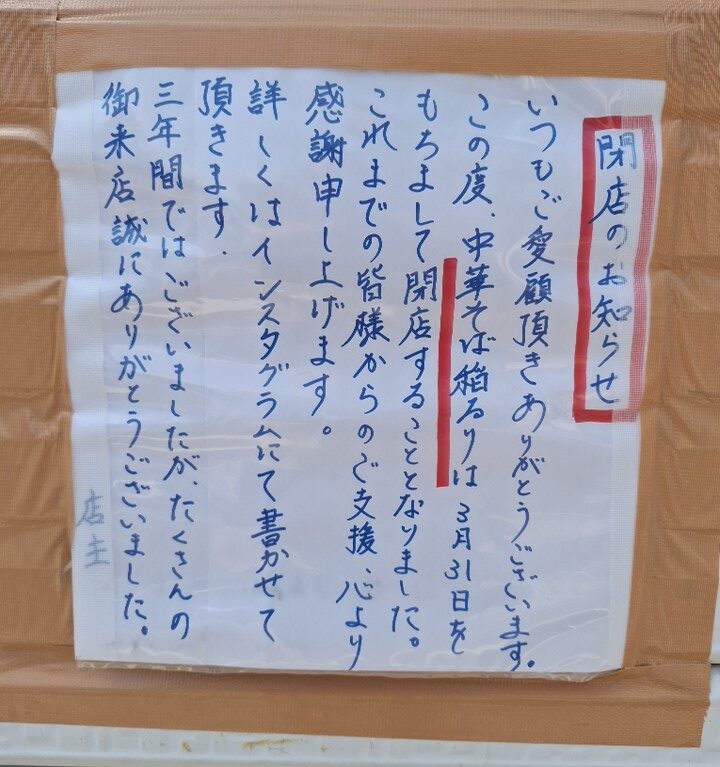 閉店のお知らせ
いつもご愛顧頂きありがとうございます。
この度、中華そば稲るりは3月31日を
もちまして閉店することとなりました。
これまでの皆様からのご支援、心より
感謝申し上げます。
詳しくはインスタグラムにて書かせて
頂きます.
三年間ではございましたが、たくさんの
御来店誠にありがとうございました。
店主